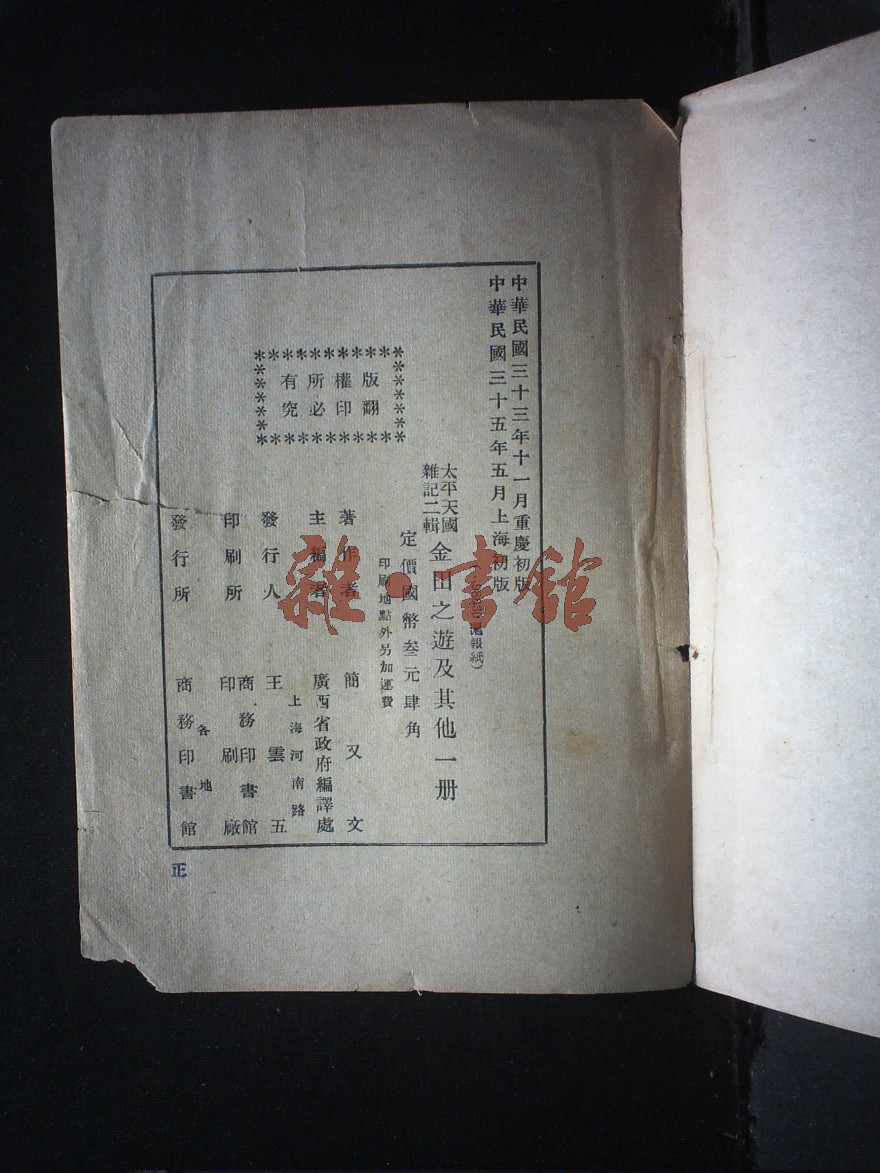 中華民國三十三年十一月重慶初版
中華民國三十五年五月上海初版
滬報紙）
太平天國
雜記二輯
金田之遊及其他一册
定價國幣叁元肆角
印刷地點外另加運費
版權所有
翻印必究
著作者 簡又文
主編者 廣西省政府編譯處
發行人 王雲五
上海河南路
印刷所 商務印書館
印刷廠
發行所 各地
商務印書館
正
雜·書館